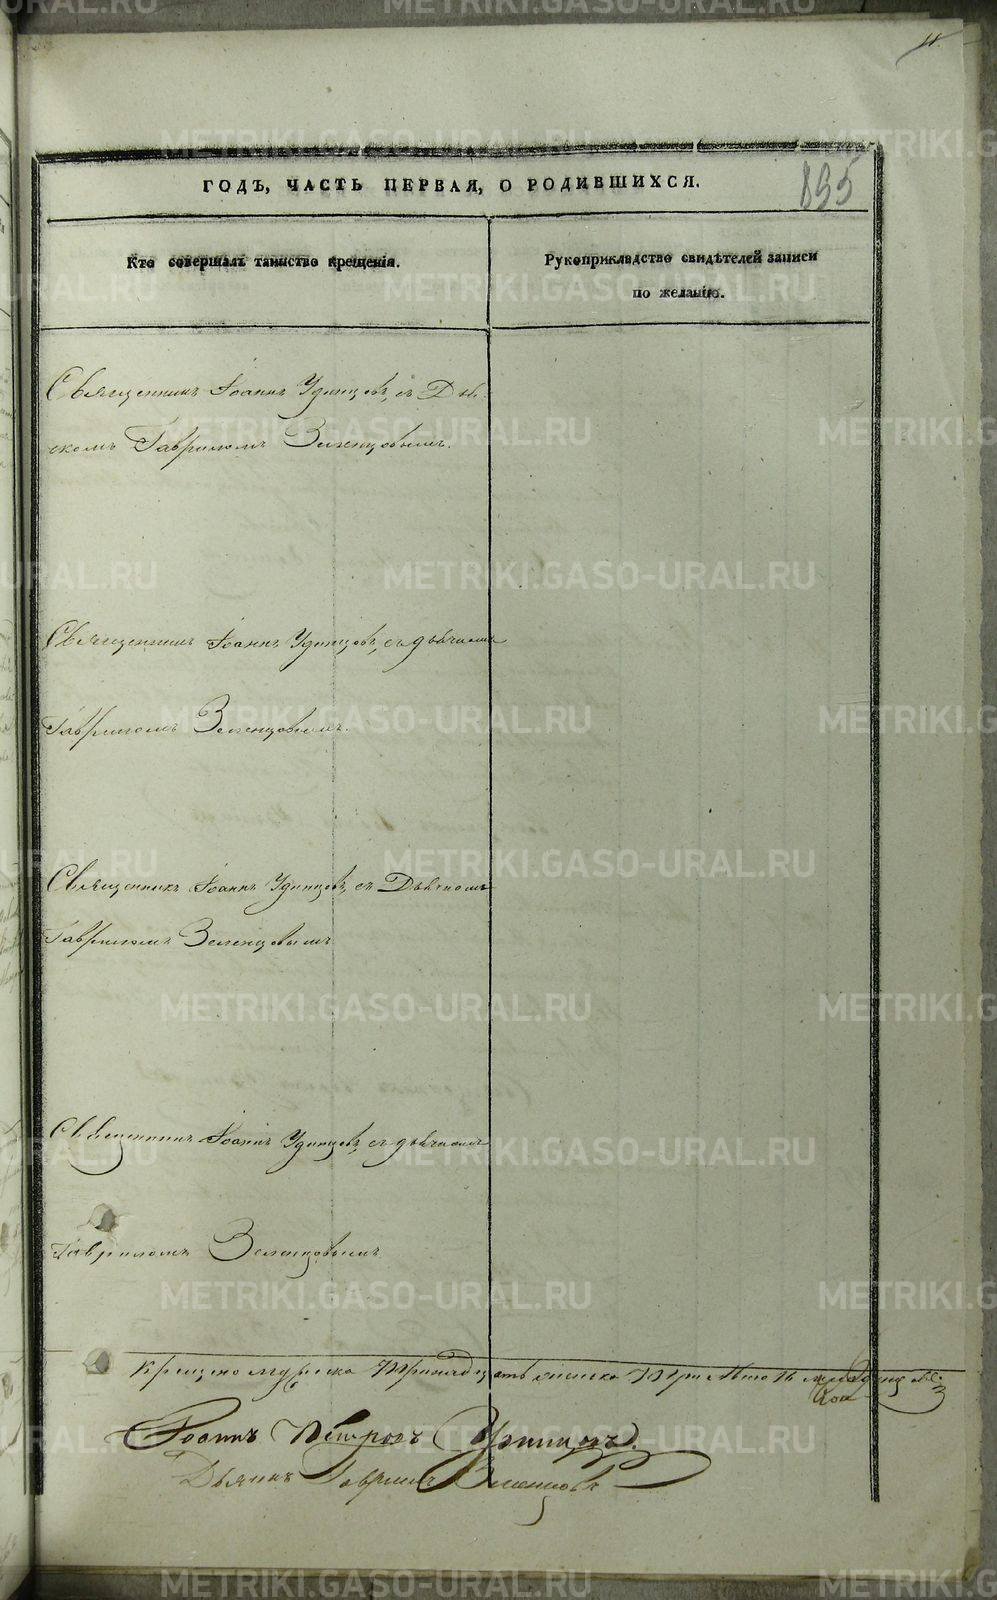 11.
ГОДЪ, ЧАСТЬ ПЕРВАЯ, О РОДИВШИХСЯ.
895
Кто совершалъ таинство крещенія.
Рукоприкладство свидѣтелей записи
по желанію.
Священникъ Іоаннъ Удинцовъ, съ Дья-
комъ Гавриломъ Зеленцовымъ.
Священникъ Іоаннъ Удинцовъ, съ дьячкомъ
Гавриломъ Зеленцовымъ.
Священникъ Іоаннъ Удинцовъ, съ Дьячкомъ
Гавриломъ Зеленцовымъ
Священникъ Іоаннъ Удинцовъ, съ дьячкомъ
Гавриломъ Зеленцовымъ
Крещено мужеска тринадцать женска
Іоаннъ Петровъ Удинцовъ.
Дьячикъ Гаврилъ Зеленцовъ
METRIKI.GASO-URAL.RU